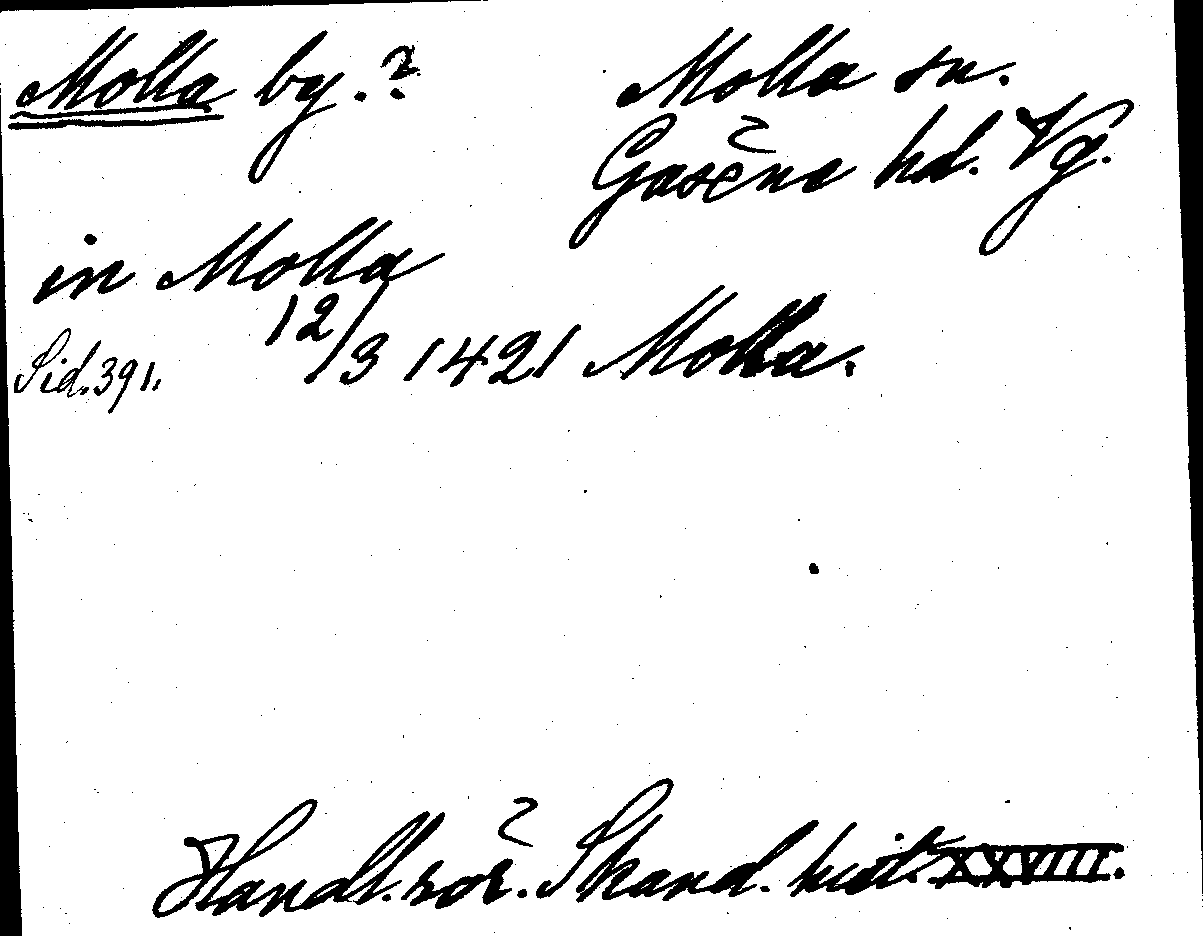 Molla by.? Molla sn.
Gäsene hd. Vg.
in Molla
Sid. 391. 12/3 1421 Molla.
Handl. rör. Skand. hist. XXVIII.